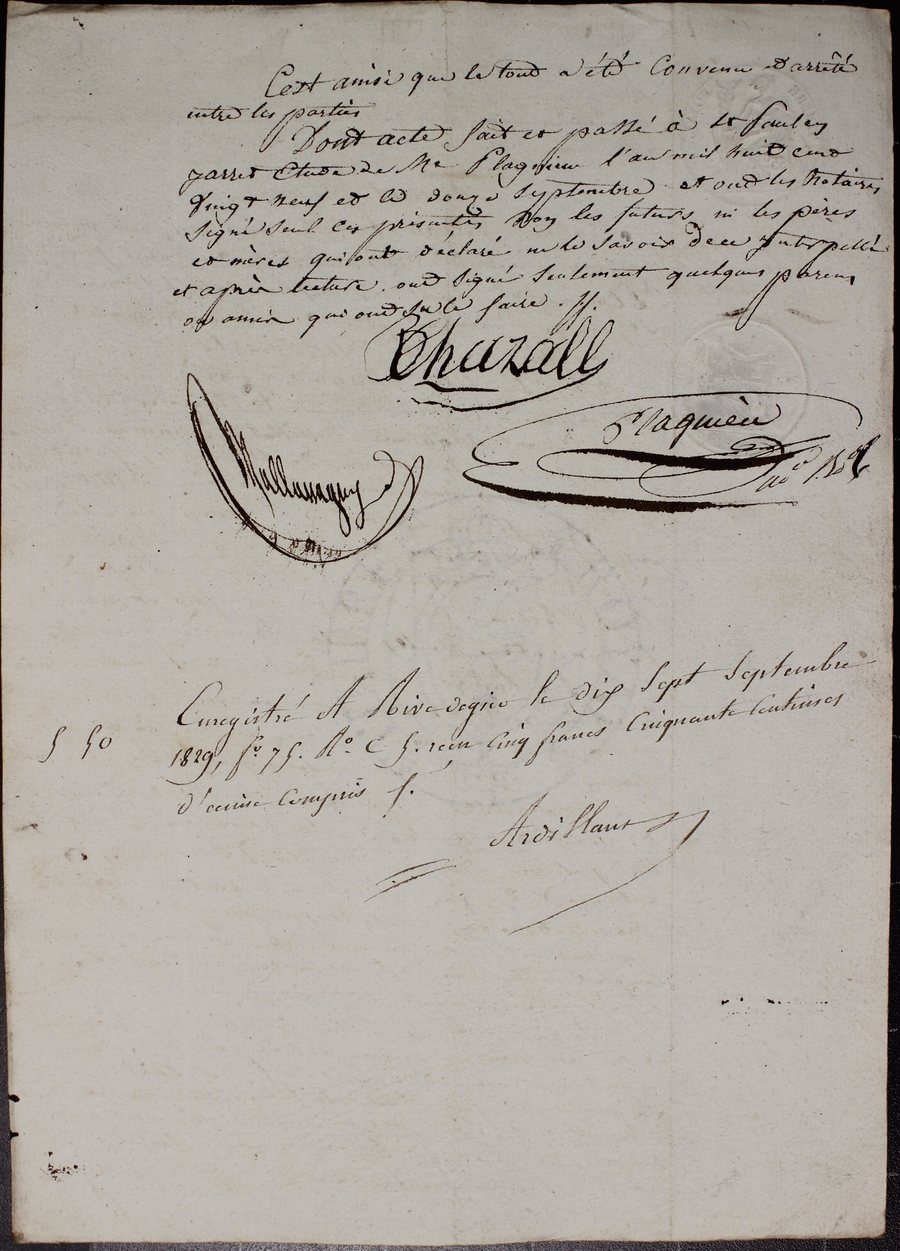 C'est ainsi que le tout a été Convenu et arrêté
entre les parties
Dont acte fait et passé à St Paul en
jarret Etude de Me Plagnieu l'an mil huit cent
Vingt neuf et le douze Septembre et ont les Notaires
Signé seul ces présentes Non les futurs, ni les pères
et mères qui ont déclaré ne le Savoir de ce Interpellés
et après lecture, ont Signé Seulement quelques parens
ou amis qui ont su le faire.
Chazall
Plagnieu
Enregistré A Rive de gier le dix Sept Septembre
5 50
1829, fo. 75. Ro. C 5. reçu Cinq francs Cinquante Centimes
d'ecime Compris
Ardillant